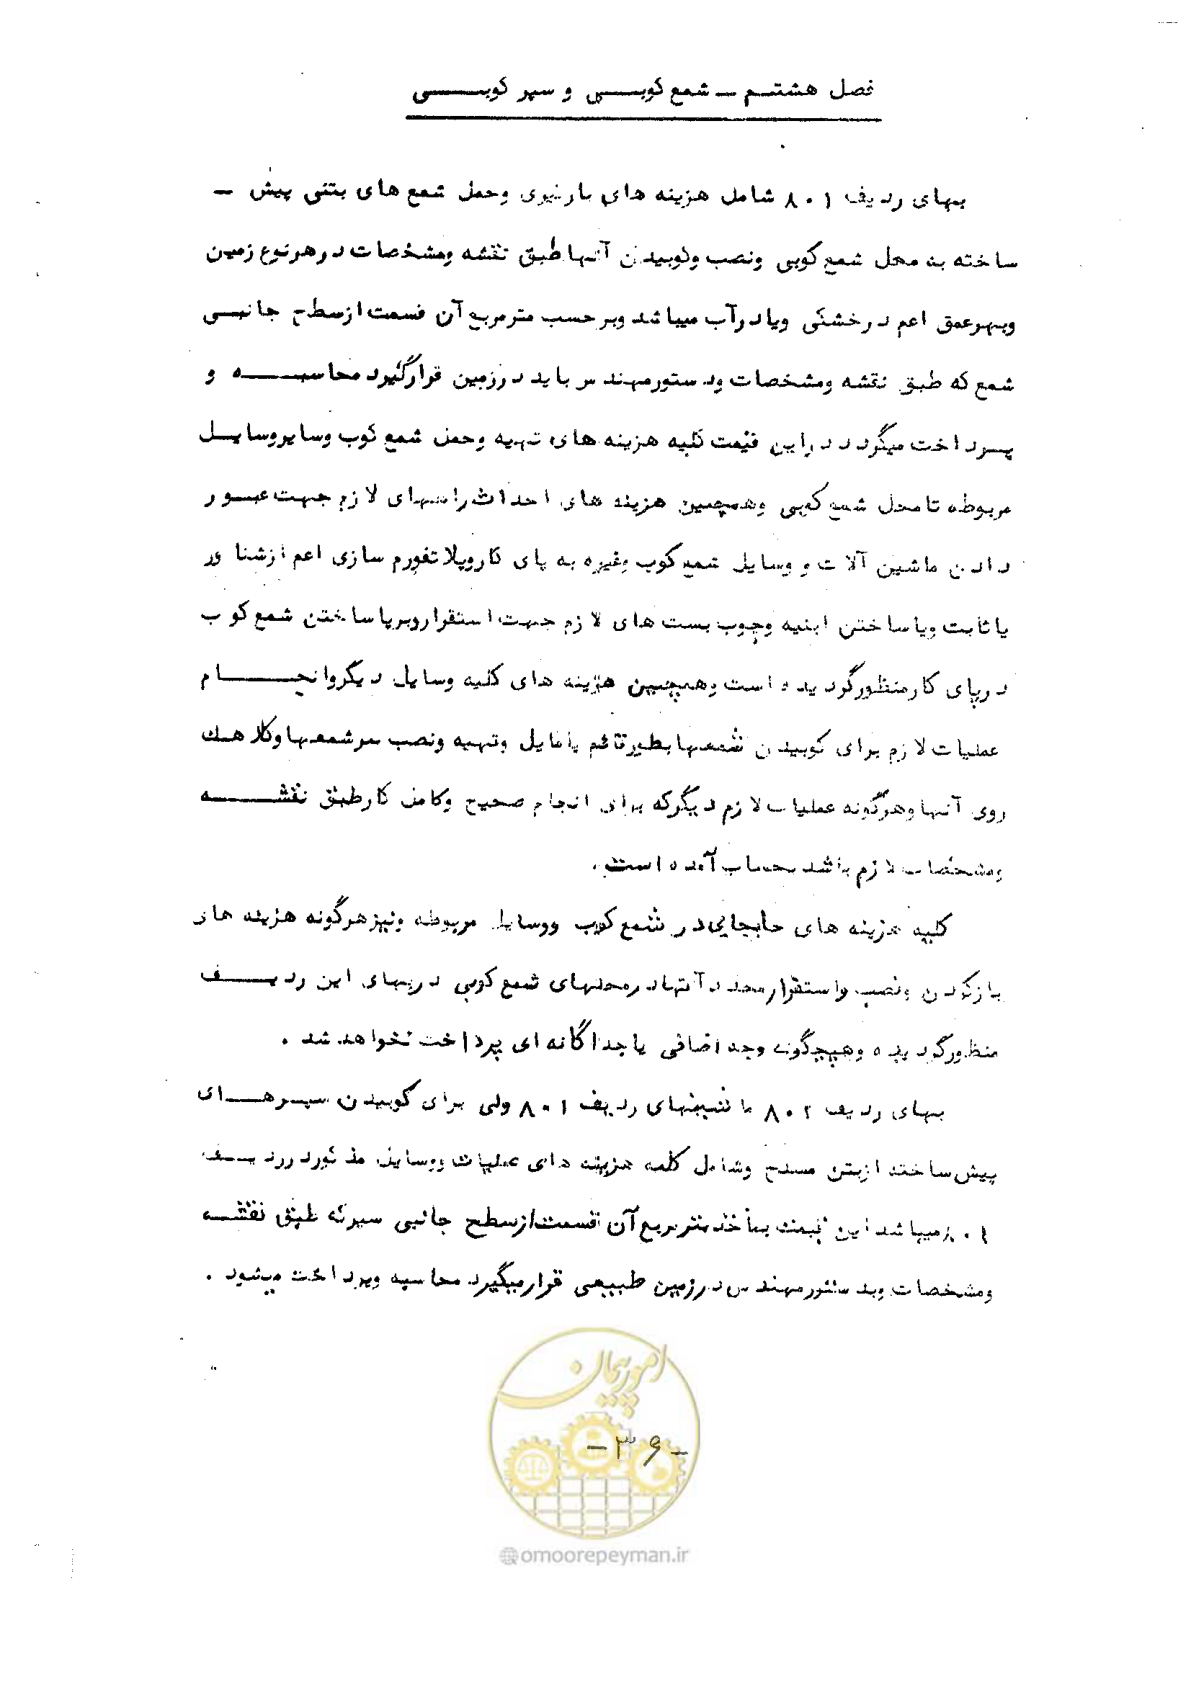 فصل هشتم – شمع کوبی و سپر کوبی
بهای ردیف ۸۰۱ شامل هزینه های بارگیری وحمل شمع های بتنی پیش –
ساخته به محل شمع کوبی ونصب وکوبیدن آنها طبق نقشه ومشخصات در هر نوع زمین
وبهر عمق اعم در خشکی ویا در آب میباشد وبر حسب متر مربع آن قسمت از سطح جانبی
شمع که طبق نقشه ومشخصات ودستور مهندس باید در زمین قرار گیرد محاسبه و
پرداخت میگردد در این قیمت کلیه هزینه های تهیه وحمل شمع کوب وسایر وسایل
مربوطه تا محل شمع کوبی وهمچنین هزینه های احداث راههای لازم جهت عبور
دادن ماشین آلات و وسایل شمع کوب وغیره به پای کار وپلاتفورم سازی اعم از شناور
یا ثابت ویا ساختن ابنیه وچوب بست های لازم جهت استقرار وبرپا ساختن شمع کوب
در پای کار منظور گردیده است وهمچنین هزینه های کلیه وسایل دیگر وانجام
عملیات لازم برای کوبیدن شمعها بطور قائم یا مایل وتهیه ونصب سر شمعها وکلاهک
روی آنها وهرگونه عملیات لازم دیگر که برای انجام صحیح وکامل کار طبق نقشه
ومشخصات لازم باشد بحساب آمده است .
کلیه هزینه های جابجایی در شمع کوب ووسایل مربوطه ونیز هرگونه هزینه های
باز کردن ونصب واستقرار مجدد آنها در محلهای شمع کوبی در بهای این ردیف
منظور گردیده وهیچگونه وجه اضافی یا جداگانه ای پرداخت نخواهد شد .
بهای ردیف ۸۰۲ با ردیف ۸۰۱ ولی برای کوبیدن سپرهای
پیش ساخته از بتن مسلح وشامل کلیه هزینه های عملیات ووسایل مذکور در ردیف
۸۰۱ میباشد این قیمت بمأخذ متر مربع آن قسمت از سطح جانبی سپر که طبق نقشه
ومشخصات وبدستور مهندس در زمین طبیعی قرار میگیرد محاسبه وپرداخت میشود .
امور پیمان
-۳۶-
@omoorepeyman.ir